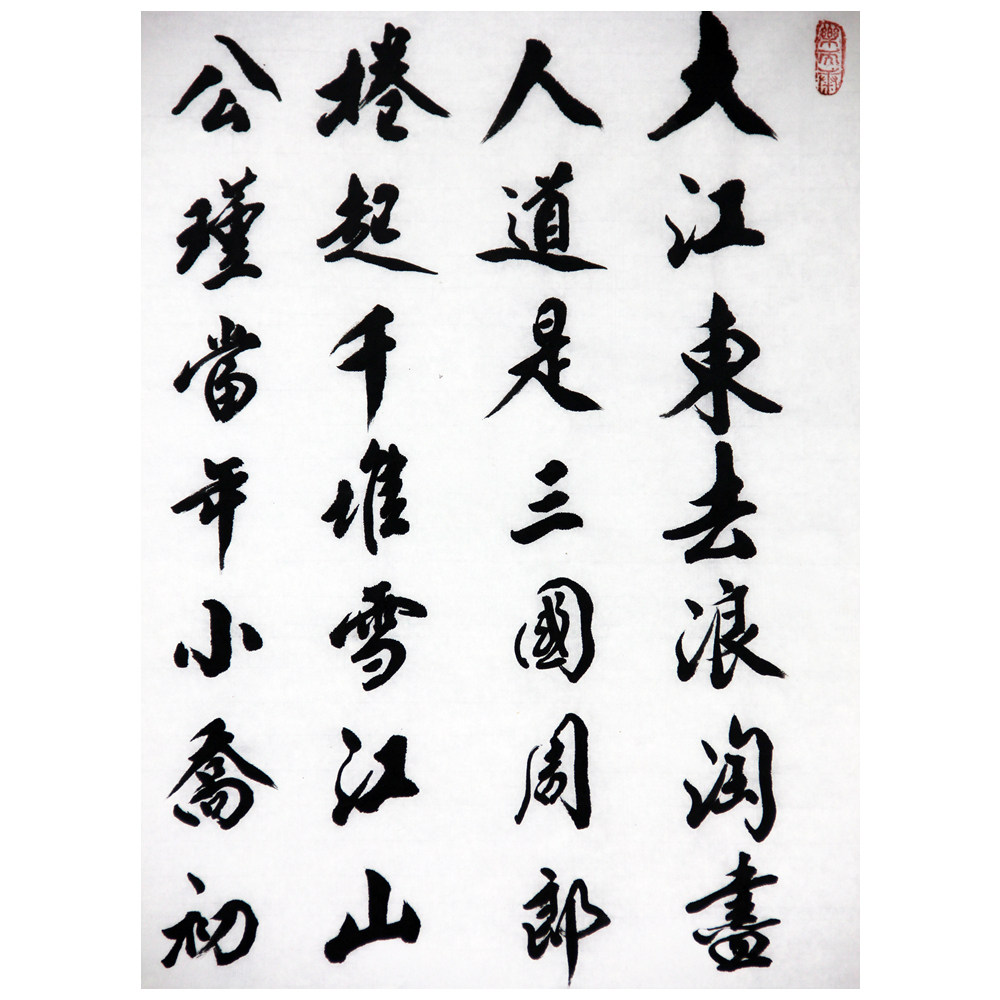 大江東去浪淘盡
人道是三國周郎
捲起千堆雪江山
公瑾當年小喬初